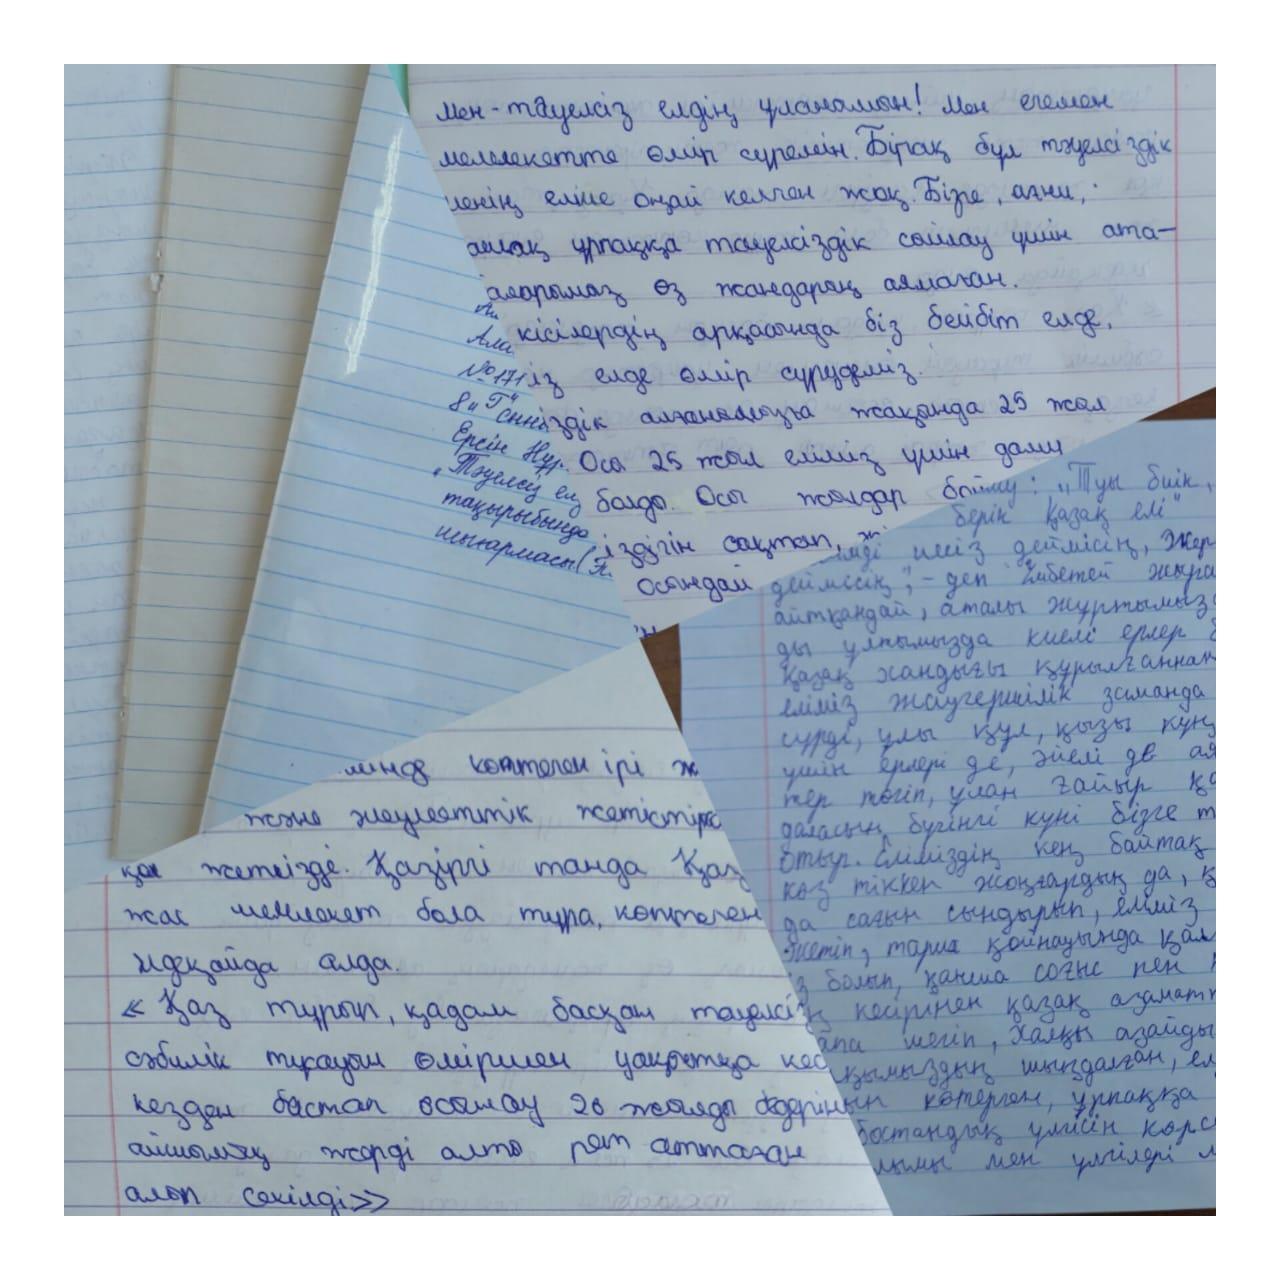 Мен-тәуелсіз елдің ұланымын! Мен егемен
мемлекетте өмір сүремін. Бірақ бұл тәуелсіздік
менің еліме оңай келген жоқ. Бізге, яғни,
ұрпаққа тәуелсіздік сыйлау үшін ата-
өз жандарын аямаған.
кісілердің арқасында біз бейбіт елде,
елде өмір сүрудеміз.
алғанымызға жақында 25 жыл
Осы 25 жыл еліміз үшін даму
болды. Осы жылдар
сақтап,
осындай
№171
8 "Г"
Ерсін Нұр
"Тәуелсіз ел
тақырыбында
шығармасы
"Туы биік,
берік қазақ елі"
иесіз деймісің, Жер
деймісің", - деп Үмбетей жырау
айтқандай, аталы жұртымызда
ды ұлтымызда киелі ерлер
Қазақ хандығы құрылғаннан
еліміз жаугершілік заманда
сүрді, ұлы құл, қызы күң
үшін ерлері де, әйелі де
тер төгіп, ұлан ғайыр
даласын бүгінгі күні бізге
отыр. Еліміздің кең байтақ
көз тіккен жоңғардың да,
да сағын сындырып, еліміз
жетіп, тарих қойнауында
болып, қанша соғыс пен
кесірінен қазақ азаматт
шегіп, халқы азайды
шыңдалған,
көтерген, ұрпаққа
бостандық үлгісін
мен үлгілері
көптеген ірі
және әлеуметтік жетістік
қол жеткізді. Қазіргі таңда Қаз
жас мемлекет бола тұра, көптеген
әлдеқайда алда.
« Қаз тұрып, қадам басқан тәуелсіз
сәбилік тұсауын өмірмен уақытқа
кезден бастап осынау 20 жылды
айшылық жерді алты рет аттаған
алып секілді»